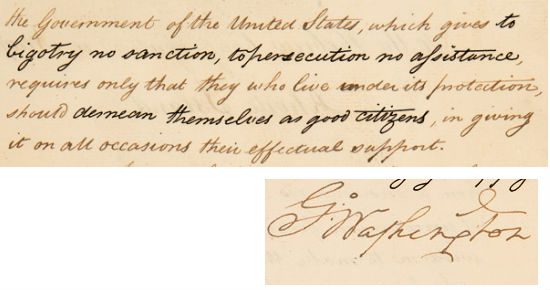 the Government of the United States, which gives to
bigotry no sanction, to persecution no assistance,
requires only that they who live under its protection,
should demean themselves as good citizens, in giving
it on all occasions their effectual support.
G. Washington